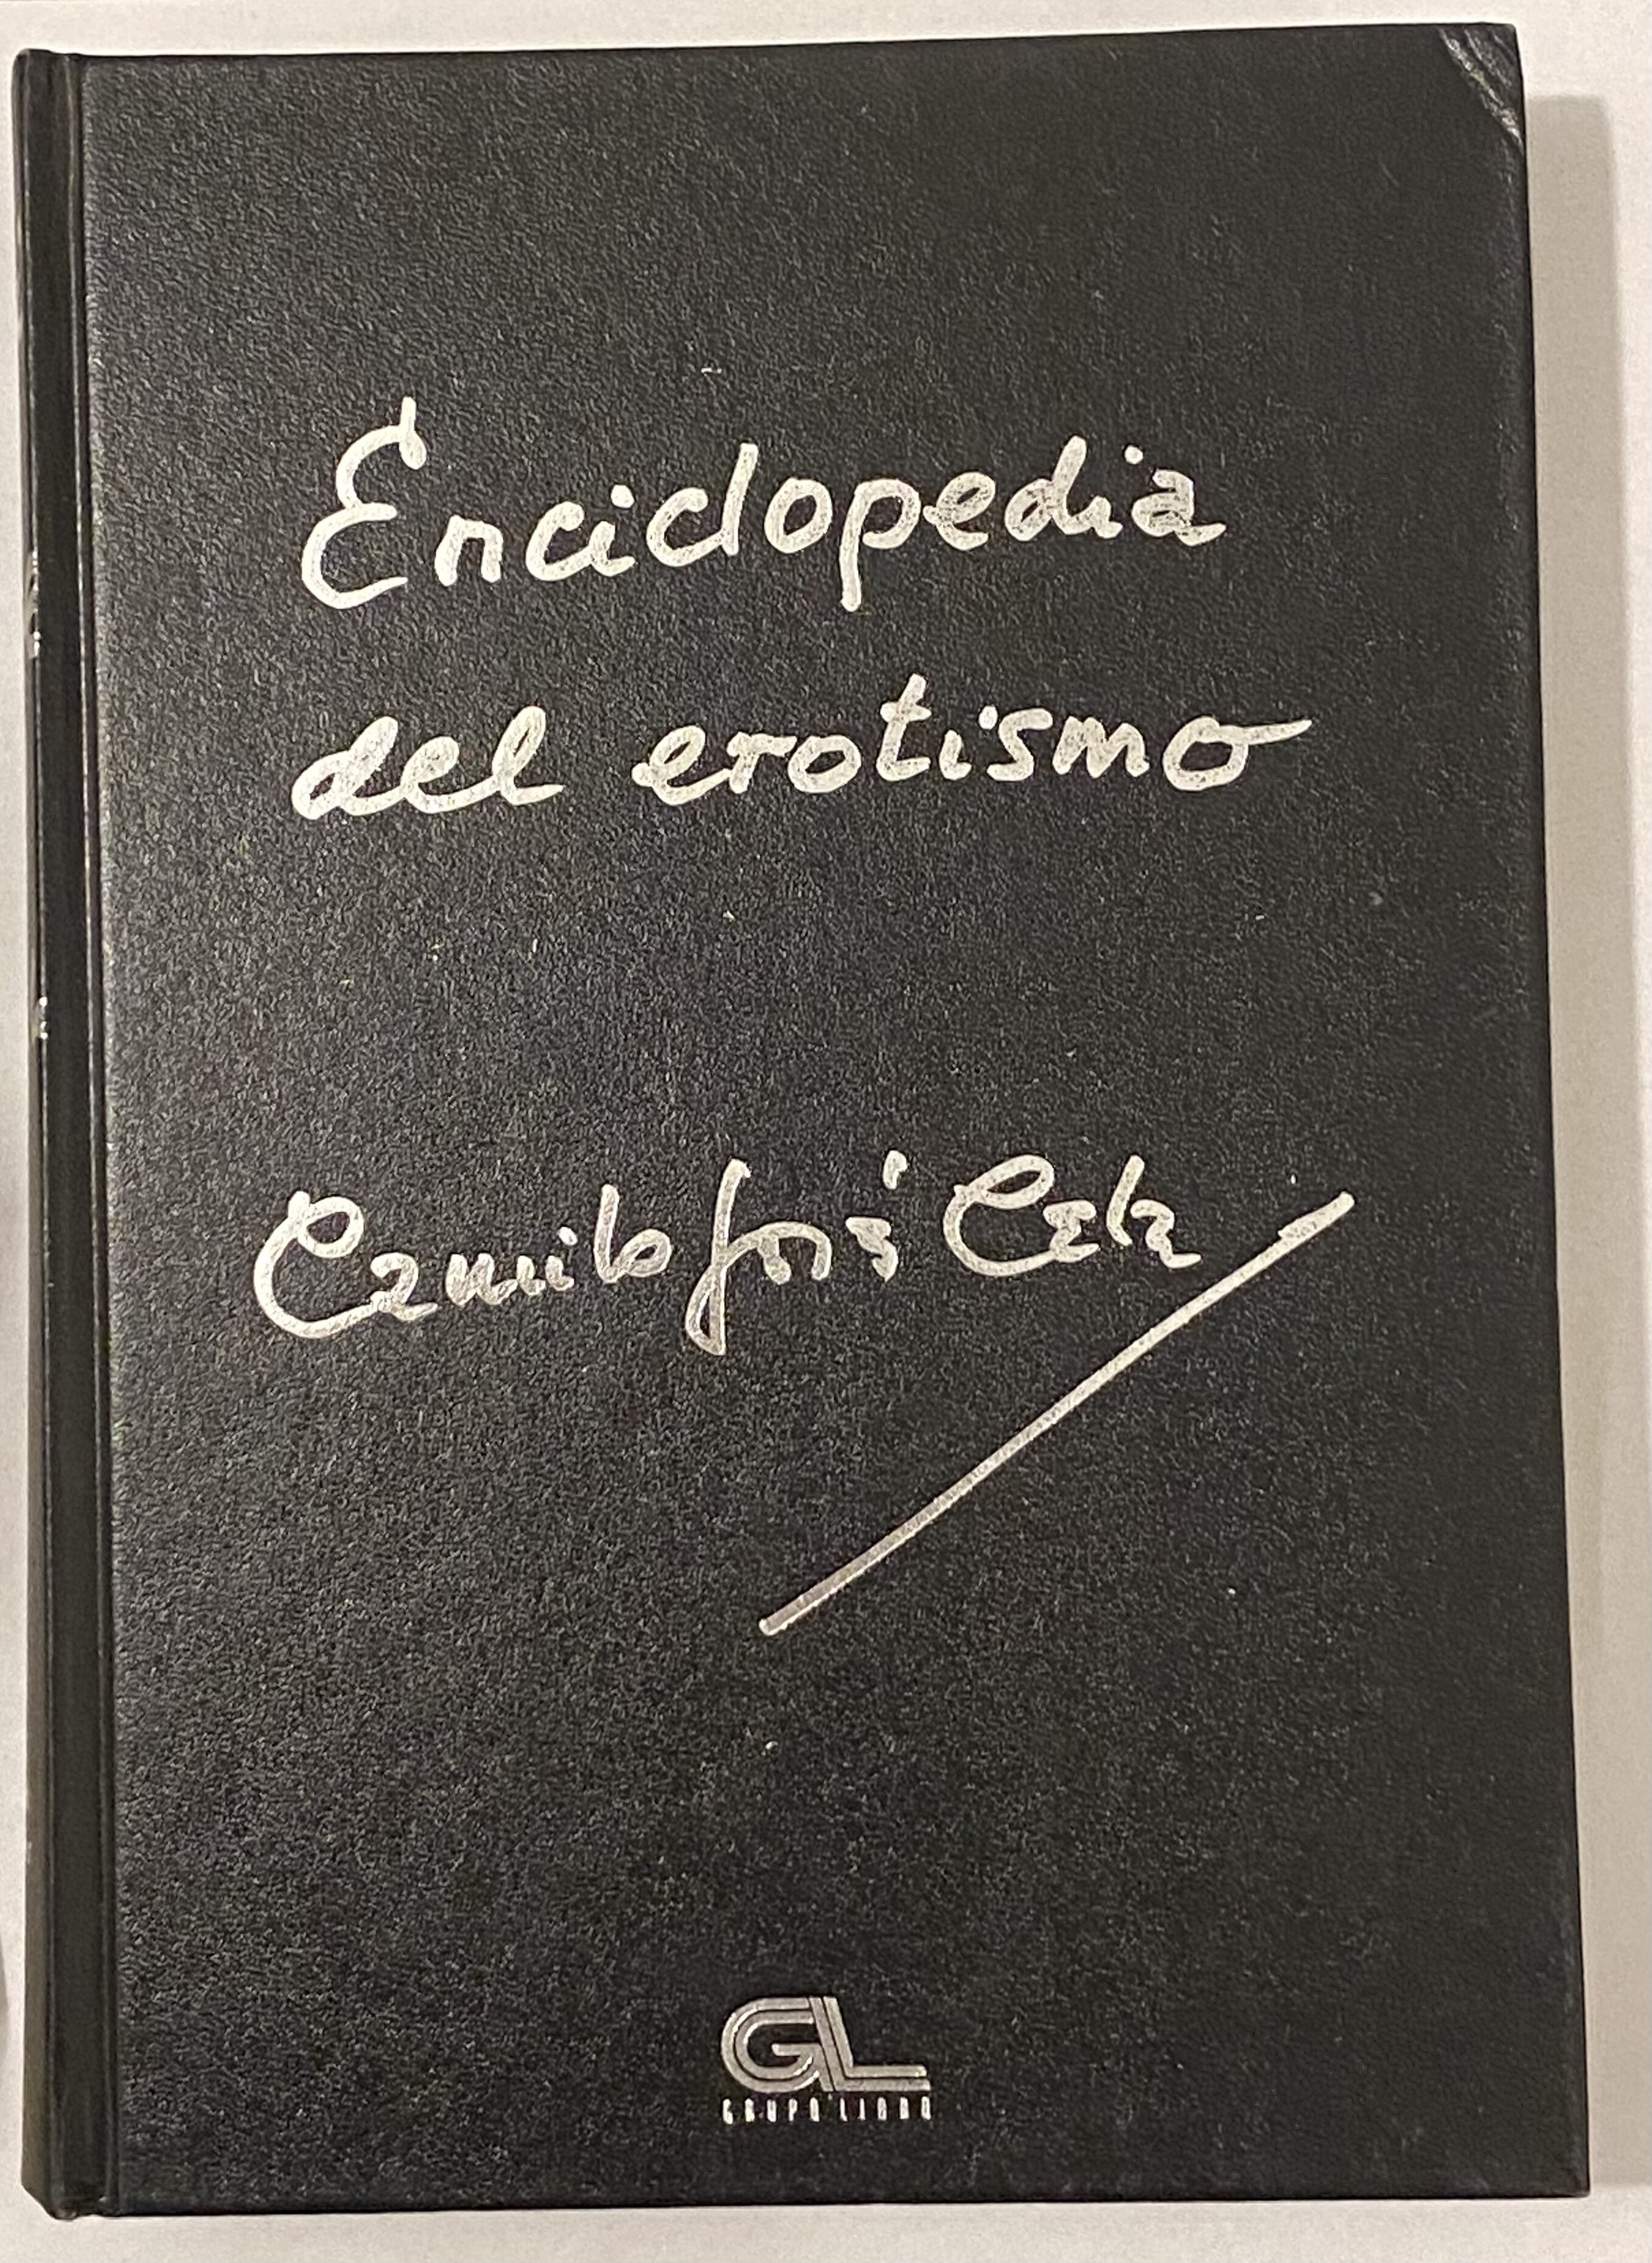 Enciclopedia
del erotismo
Camilo José Cela
GL
GRUPO LIBRO